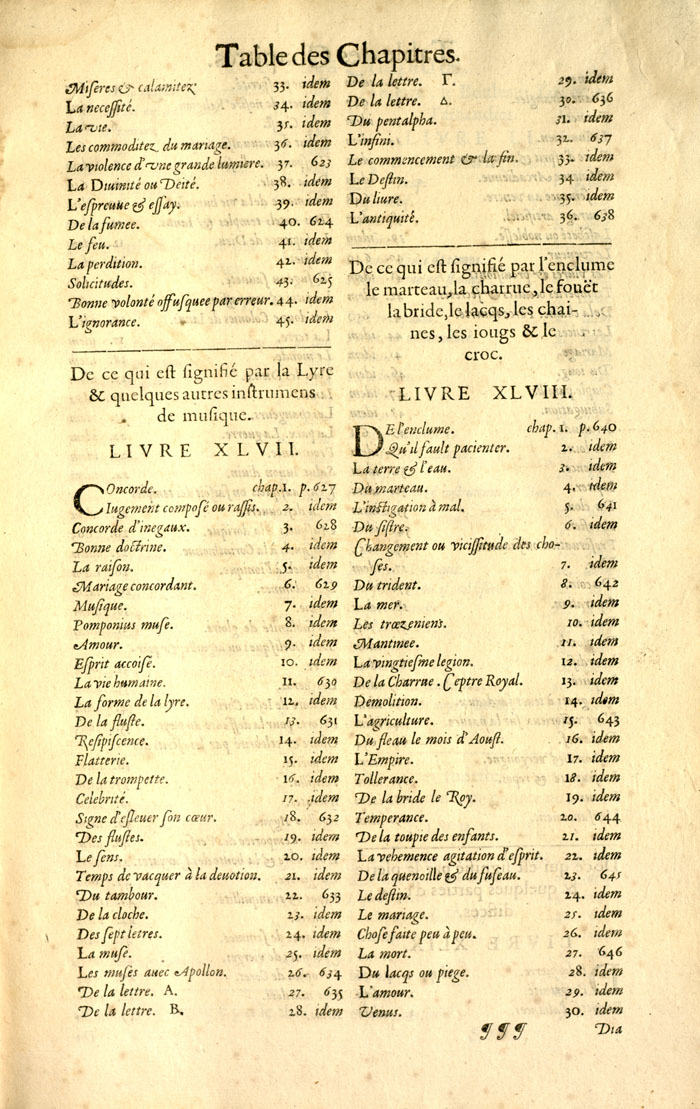 Table des Chapitres.
Miseres & calamitez 33. idem
La necessité. 34. idem
La vie. 35. idem
Les commoditez du mariage. 36. idem
La violence d'vne grande lumiere. 37. 623
La Diuinité ou Deité. 38. idem
L'espreuue & essay. 39. idem
De la fumee. 40. 624
Le feu. 41. idem
La perdition. 42. idem
Solicitudes. 43. 625
Bonne volonté offusquee par erreur. 44. idem
L'ignorance. 45. idem
De ce qui est signifié par la Lyre
& quelques autres instrumens
de musique.
LIVRE XLVII.
COncorde. chap. 1. p. 627
Iugement composé ou rassis. 2. idem
Concorde d'inegaux. 3. 628
Bonne doctrine. 4. idem
La raison. 5. idem
Mariage concordant. 6. 629
Musique. 7. idem
Pomponius muse. 8. idem
Amour. 9. idem
Esprit accoisé. 10. idem
La vie humaine. 11. 630
La forme de la lyre. 12. idem
De la fluste. 13. 631
Resipiscence. 14. idem
Flatterie. 15. idem
De la trompette. 16. idem
Celebrité. 17. idem
Signe d'esleuer son cœur. 18. 632
Des flustes. 19. idem
Le sens. 20. idem
Temps de vacquer à la deuotion. 21. idem
Du tambour. 22. 633
De la cloche. 23. idem
Des sept letres. 24. idem
La muse. 25. idem
Les muses auec Apollon. 26. 634
De la lettre. A. 27. 635
De la lettre. B. 28. idem
De la lettre. Γ. 29. idem
De la lettre. Δ. 30. 636
Du pentalpha. 31. idem
L'infini. 32. 637
Le commencement & la fin. 33. idem
Le Destin. 34 idem
Du liure. 35. idem
L'antiquité. 36. 638
De ce qui est signifié par l'enclume
le marteau, la charrue, le fouët
la bride, le lacqs, les chai-
nes, les iougs & le
croc.
LIVRE XLVIII.
DE l'enclume. chap. 1. p. 640
Qu'il fault pacienter. 2. idem
La terre & l'eau. 3. idem
Du marteau. 4. idem
L'instigation à mal. 5. 641
Du sistre. 6. idem
Changement ou vicissitude des cho-
ses. 7. idem
Du trident. 8. 642
La mer. 9. idem
Les trœzeniens. 10. idem
Mantinee. 11. idem
La vingtiesme legion. 12. idem
De la Charrue. Ceptre Royal. 13. idem
Demolition. 14. idem
L'agriculture. 15. 643
Du fleau le mois d'Aoust. 16. idem
L'Empire. 17. idem
Tollerance. 18. idem
De la bride le Roy. 19. idem
Temperance. 20. 644
De la toupie des enfants. 21. idem
La vehemence agitation d'esprit. 22. idem
De la quenoille & du fuseau. 23. 645
Le destin. 24. idem
Le mariage. 25. idem
Chose faite peu à peu. 26. idem
La mort. 27. 646
Du lacqs ou piege. 28. idem
L'amour. 29. idem
Venus. 30. idem
¶¶¶ Dia